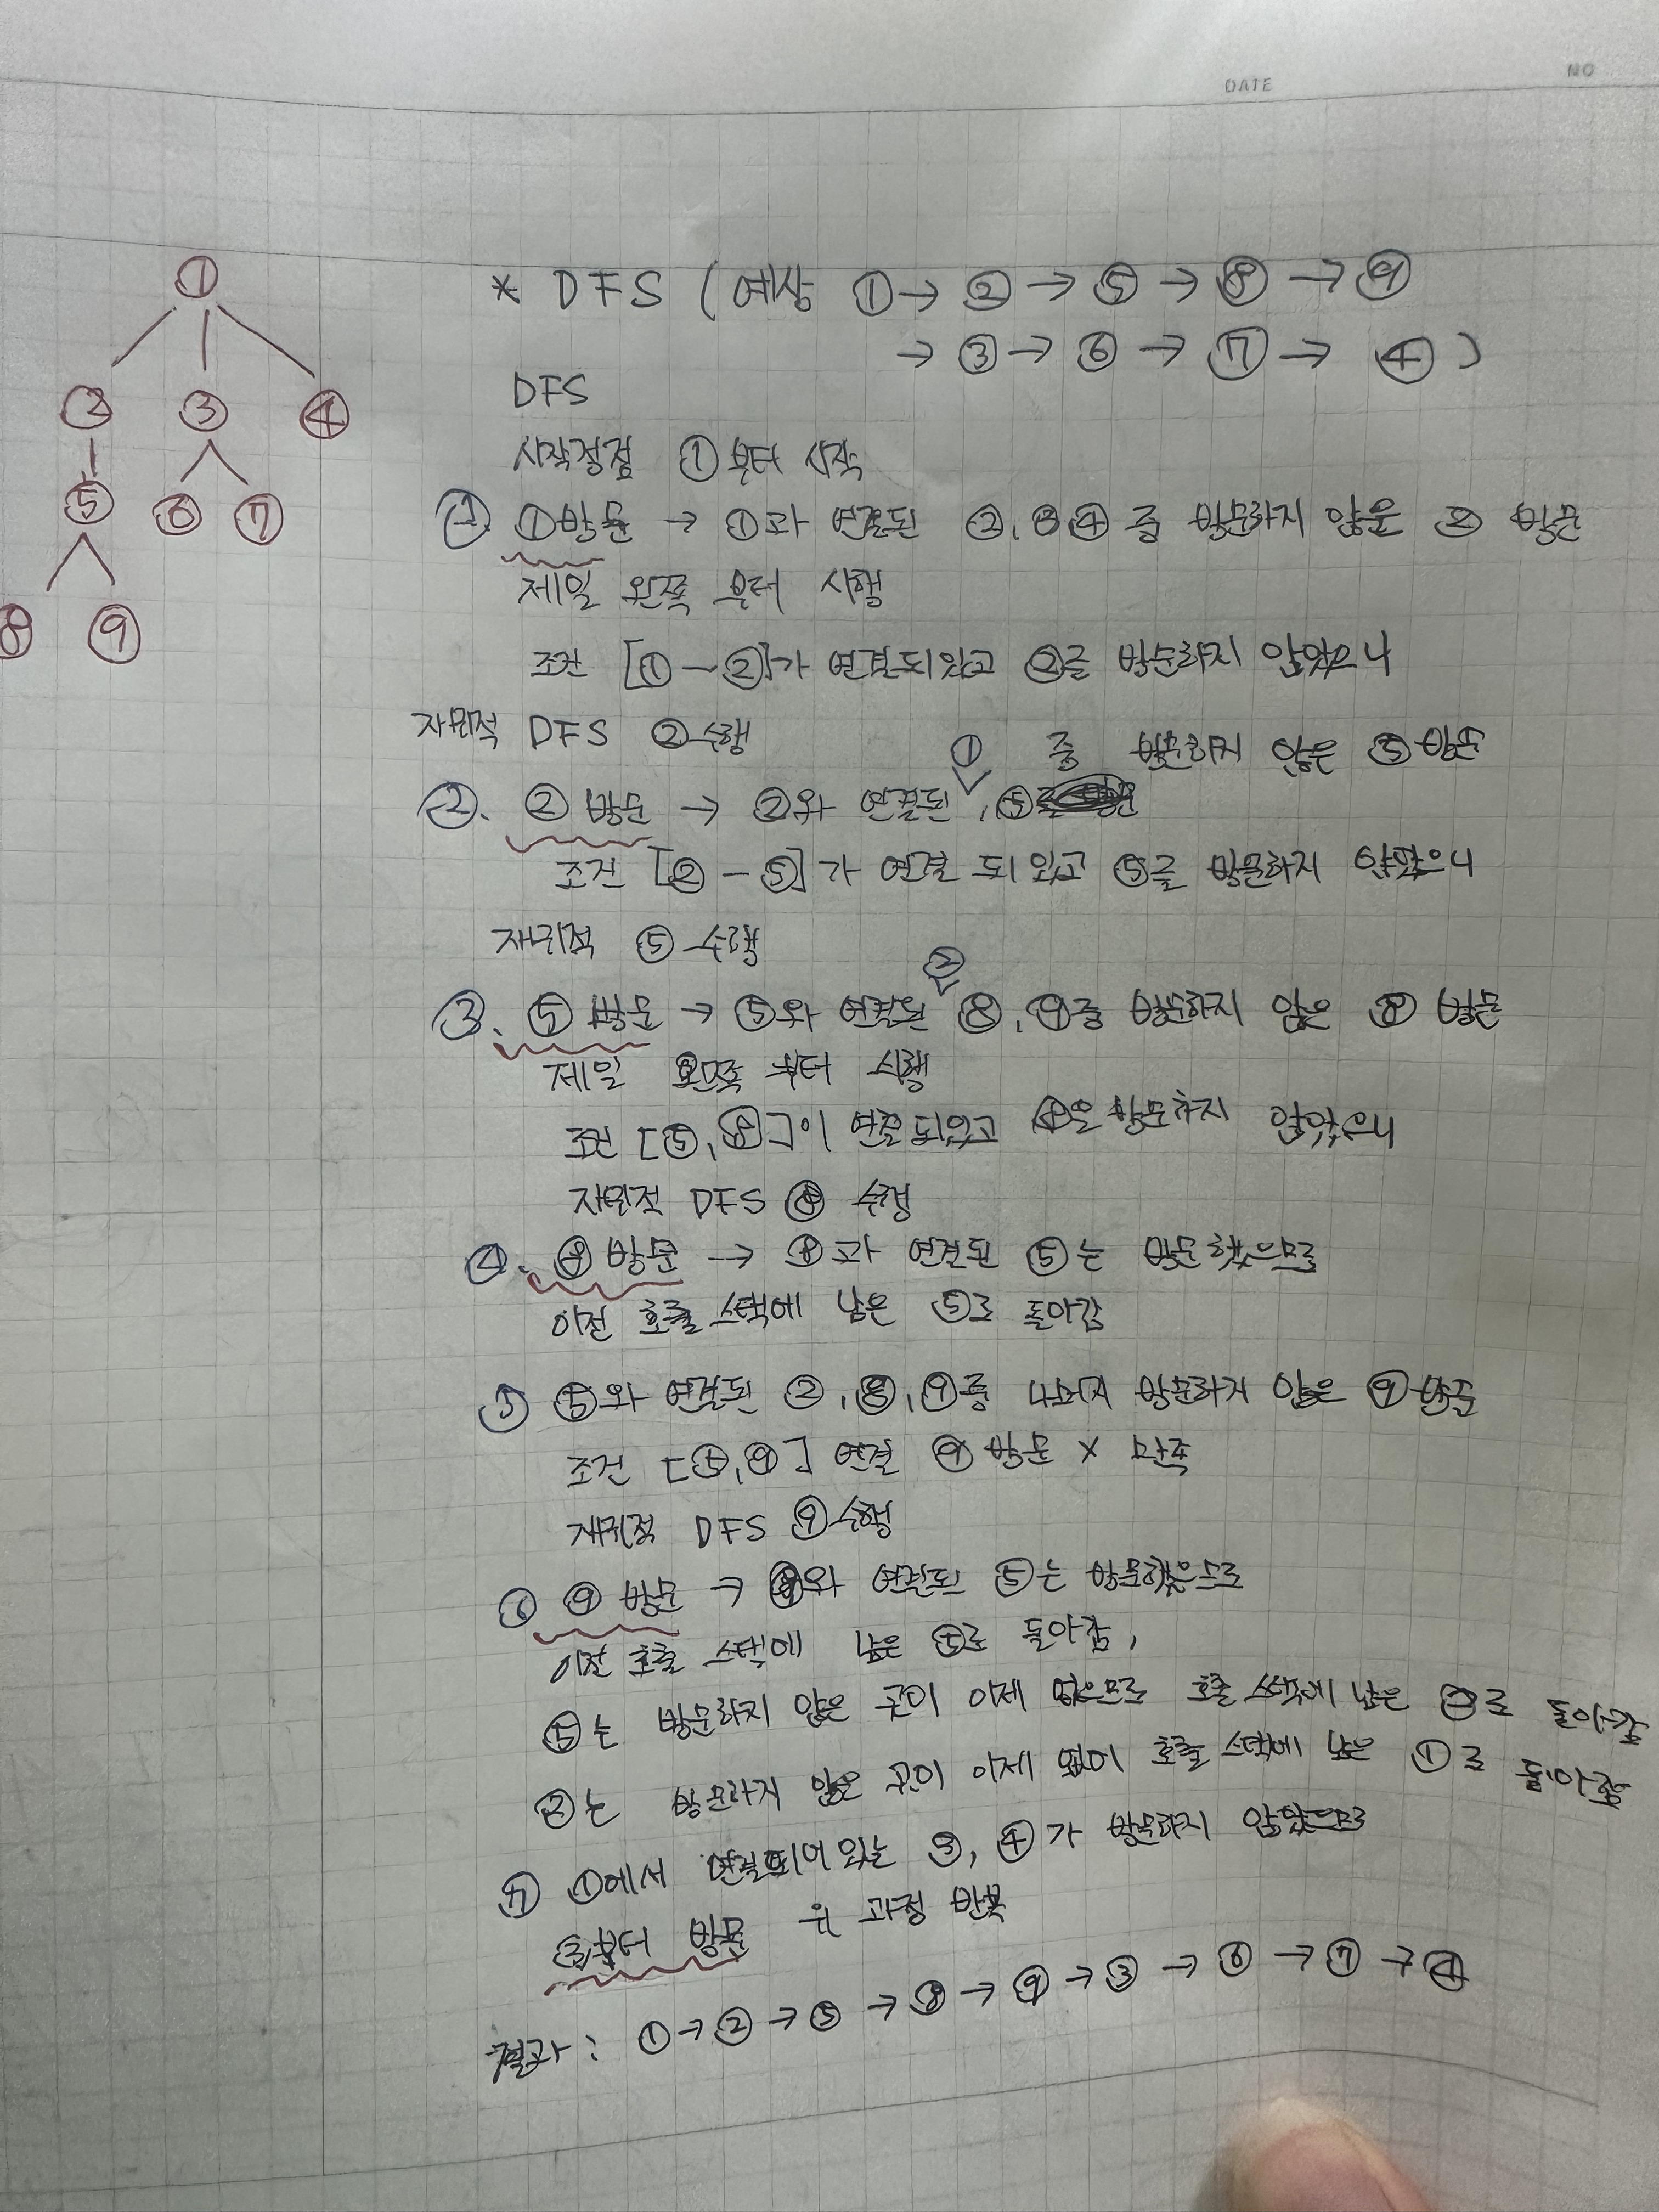 DATE
NO
①
② ③ ④
⑤ ⑥ ⑦
⑧ ⑨
* DFS (예상 ① → ② → ⑤ → ⑧ → ⑨
→ ③ → ⑥ → ⑦ → ④ )
DFS
시작정점 ① 부터 시작
①. ①방문 → ①과 연결된 ②, ③ ④ 중 방문하지 않은 ② 방문
제일 왼쪽 부터 시행
조건 [① - ②]가 연결되있고 ②를 방문하지 않았으니
재귀적 DFS ② 수행
②. ② 방문 → ②와 연결된 ①, ⑤ 중 방문하지 않은 ⑤ 방문
조건 [② - ⑤]가 연결 되있고 ⑤를 방문하지 않았으니
재귀적 ⑤ 수행
③. ⑤ 방문 → ⑤와 연결된 ② ⑧, ⑨중 방문하지 않은 ⑧ 방문
제일 왼쪽 부터 시행
조건 [⑤, ⑧]이 연결되있고 ⑧은 방문하지 않았으니
재귀적 DFS ⑧ 수행
④. ⑧ 방문 → ⑧과 연결된 ⑤는 방문했으므로
이전 호출 스택에 남은 ⑤로 돌아감
⑤ ⑤와 연결된 ②, ⑧, ⑨중 나머지 방문하지 않은 ⑨ 방문
조건 [⑤, ⑨] 연결 ⑨ 방문 X 만족
재귀적 DFS ⑨ 수행
⑥ ⑨ 방문 → ⑨와 연결된 ⑤는 방문했으므로
이전 호출 스택에 남은 ⑤로 돌아감,
⑤는 방문하지 않은 곳이 이제 없으므로 호출 스택에 남은 ②로 돌아감
②는 방문하지 않은 곳이 이제 없어 호출 스택에 남은 ①로 돌아감
⑦ ①에서 연결되어 있는 ③, ④가 방문하지 않았으므로
③부터 방문 위 과정 반복
결과 : ① → ② → ⑤ → ⑧ → ⑨ → ③ → ⑥ → ⑦ → ④